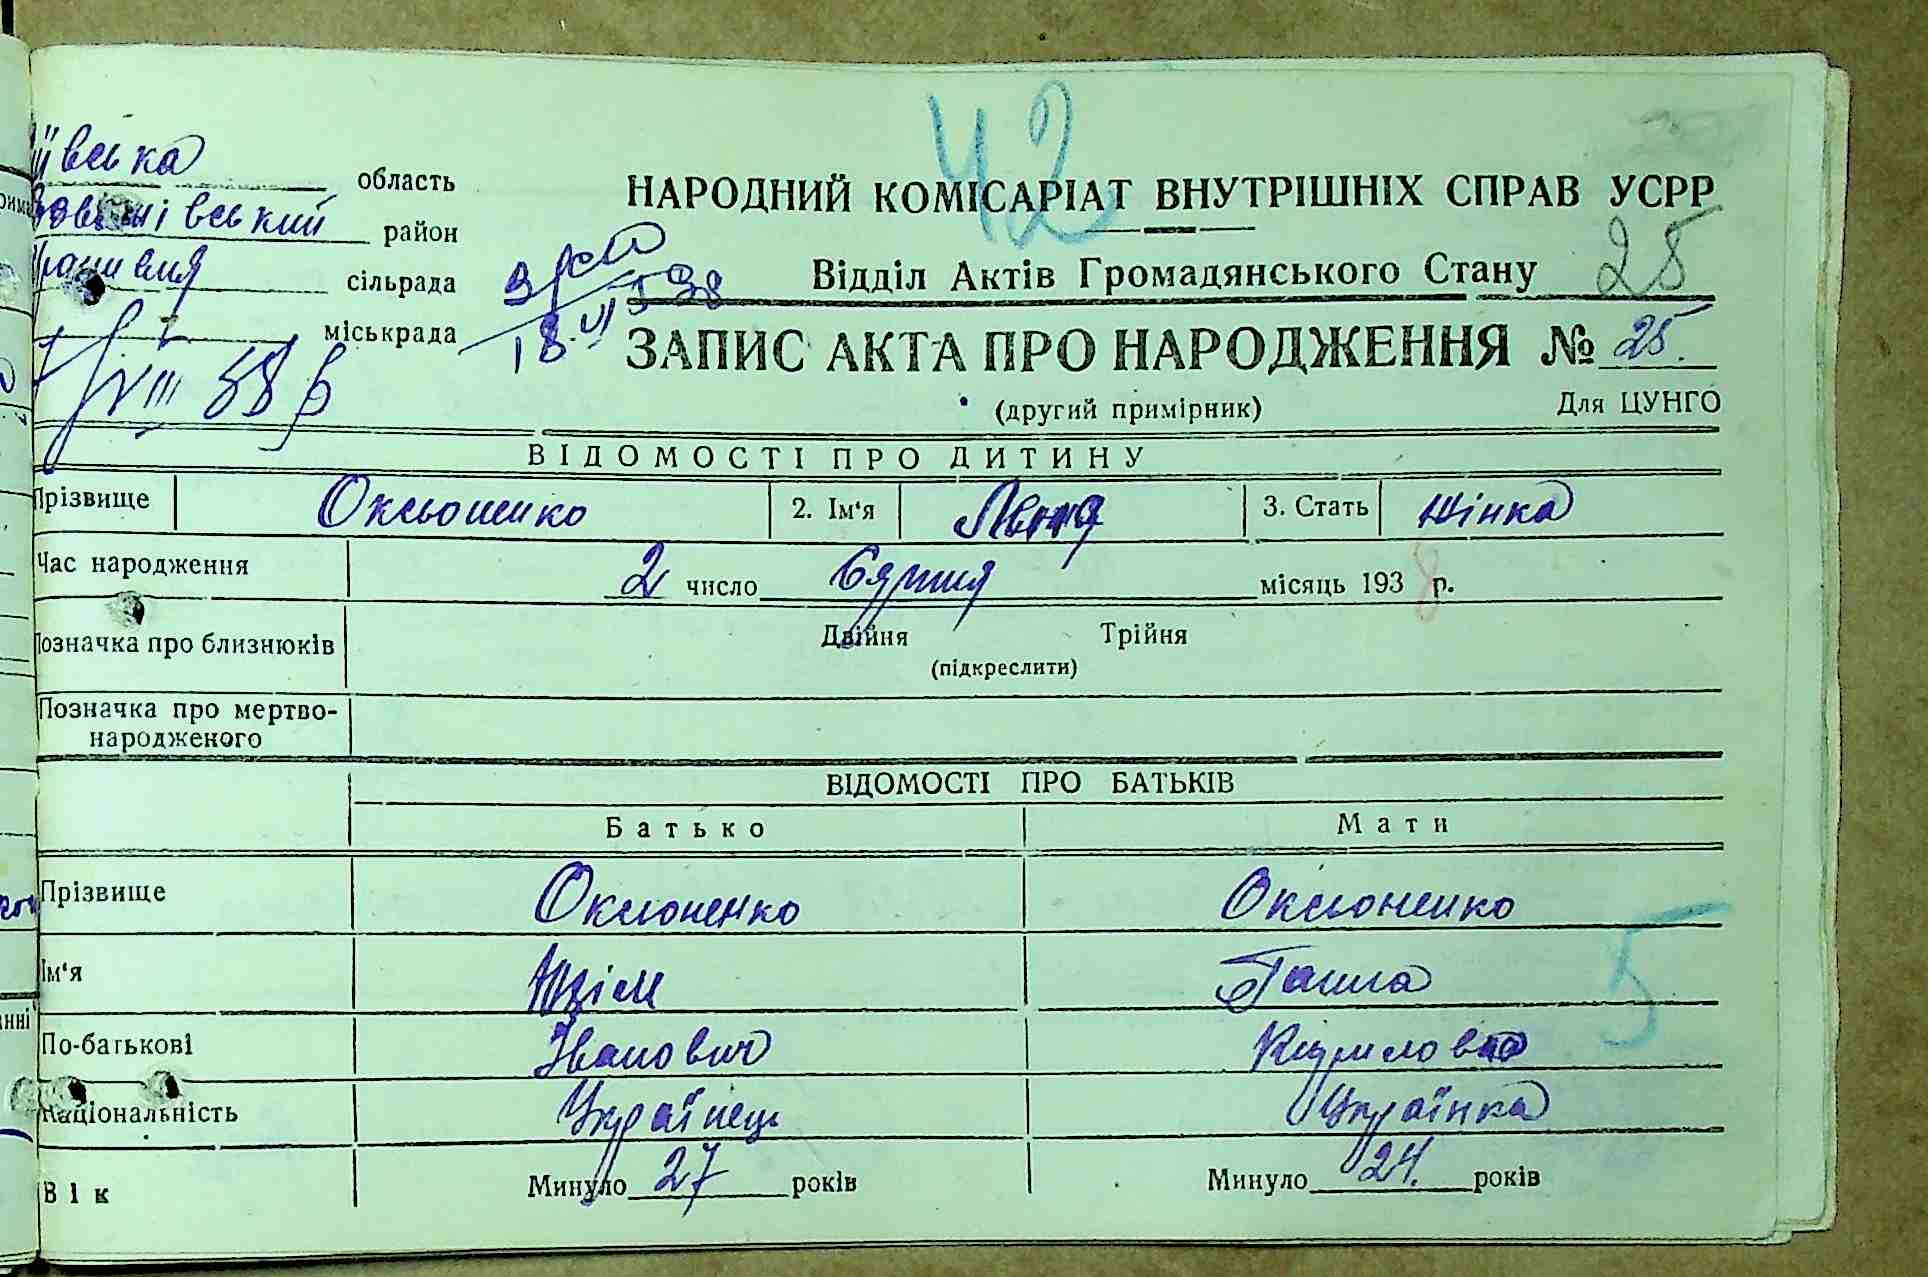 42
ївська область
район
сільрада
міськрада
VIII 38 р
18 VI 1938
НАРОДНИЙ КОМІСАРІАТ ВНУТРІШНІХ СПРАВ УСРР
Відділ Актів Громадянського Стану 25
ЗАПИС АКТА ПРО НАРОДЖЕННЯ № 25.
(другий примірник) Для ЦУНГО
ВІДОМОСТІ ПРО ДИТИНУ
Прізвище Оксьоненко 2. Ім'я 3. Стать жінка
Час народження 2 число Серпня місяць 1938 р.
Позначка про близнюків Двійня Трійня
(підкреслити)
Позначка про мертво-
народженого
ВІДОМОСТІ ПРО БАТЬКІВ
Батько Мати
Прізвище Оксюненко Оксьоненко
Ім'я Юхім Ганна
По-батькові Іванович Кирилівна
Національність Українець Українка
Вік Минуло 27 років Минуло 24. років
5